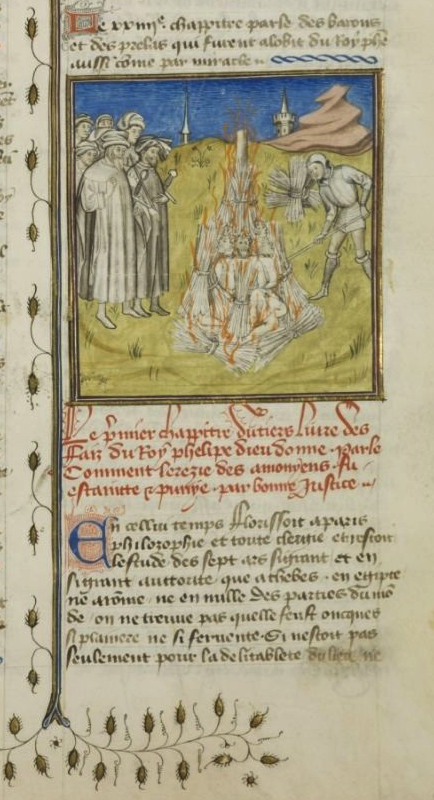 Le xxiiije. chappitre parle des barons
et des prelas qui furent a lobit du Roy phe
aussi come par miracle
Le premier chappitre du tiers liure des
faiz du Roy phelipe dieu donne. parle
Comment lerezie des amoriens fu
estainte & punye. par bonne Justice
En cellui temps florissoit a paris
philozophie et toute clergie et estoit
lestude des sept ars si grant et en
si grant auttorite que a thebes. en egipte
ne a rome. ne en nulle des parties du mo
de. on ne treuue pas quelle feust oncques
si planiere ne si feruente. Si nestoit pas
seulement pour la delitablete du lieu ne